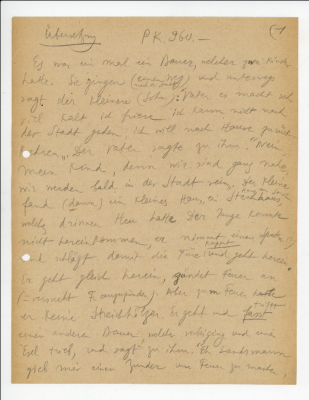 Übersetzung P.K. 960.—
Es war ein mal ein Bauer, welcher zwei Kinder
hatte. Sie gingen (einen Weg) und unterwegs
sagt der kleinere (Sohn): Vater es macht
viel kalt ich friere ich kann nicht nach
der Stadt gehen. Ich will nach Hause zurück
kehren. Der Vater sagte zu ihm: Nein
mein Kind, denn wir sind ganz nahe,
wir werden bald in der Stadt sein. Der kleine
fand (dann) ein kleines Haus,
welch drinnen Heu hatte. Der Junge konnte
nicht hereinkommen, er nimmt einen
und schlägt damit die Türe und geht herein.
Er geht gleich herein, zündet Feuer an
(= Feuer angezündet). Aber zum Feuer hatte
er keine Streichhölzer. Er geht und
einen andern Bauer, welcher vorbeiging und eine
Esel trieb, und sagt zu ihm: Eh Landsmann
gieb mir einen Zunder um Feuer zu machen,